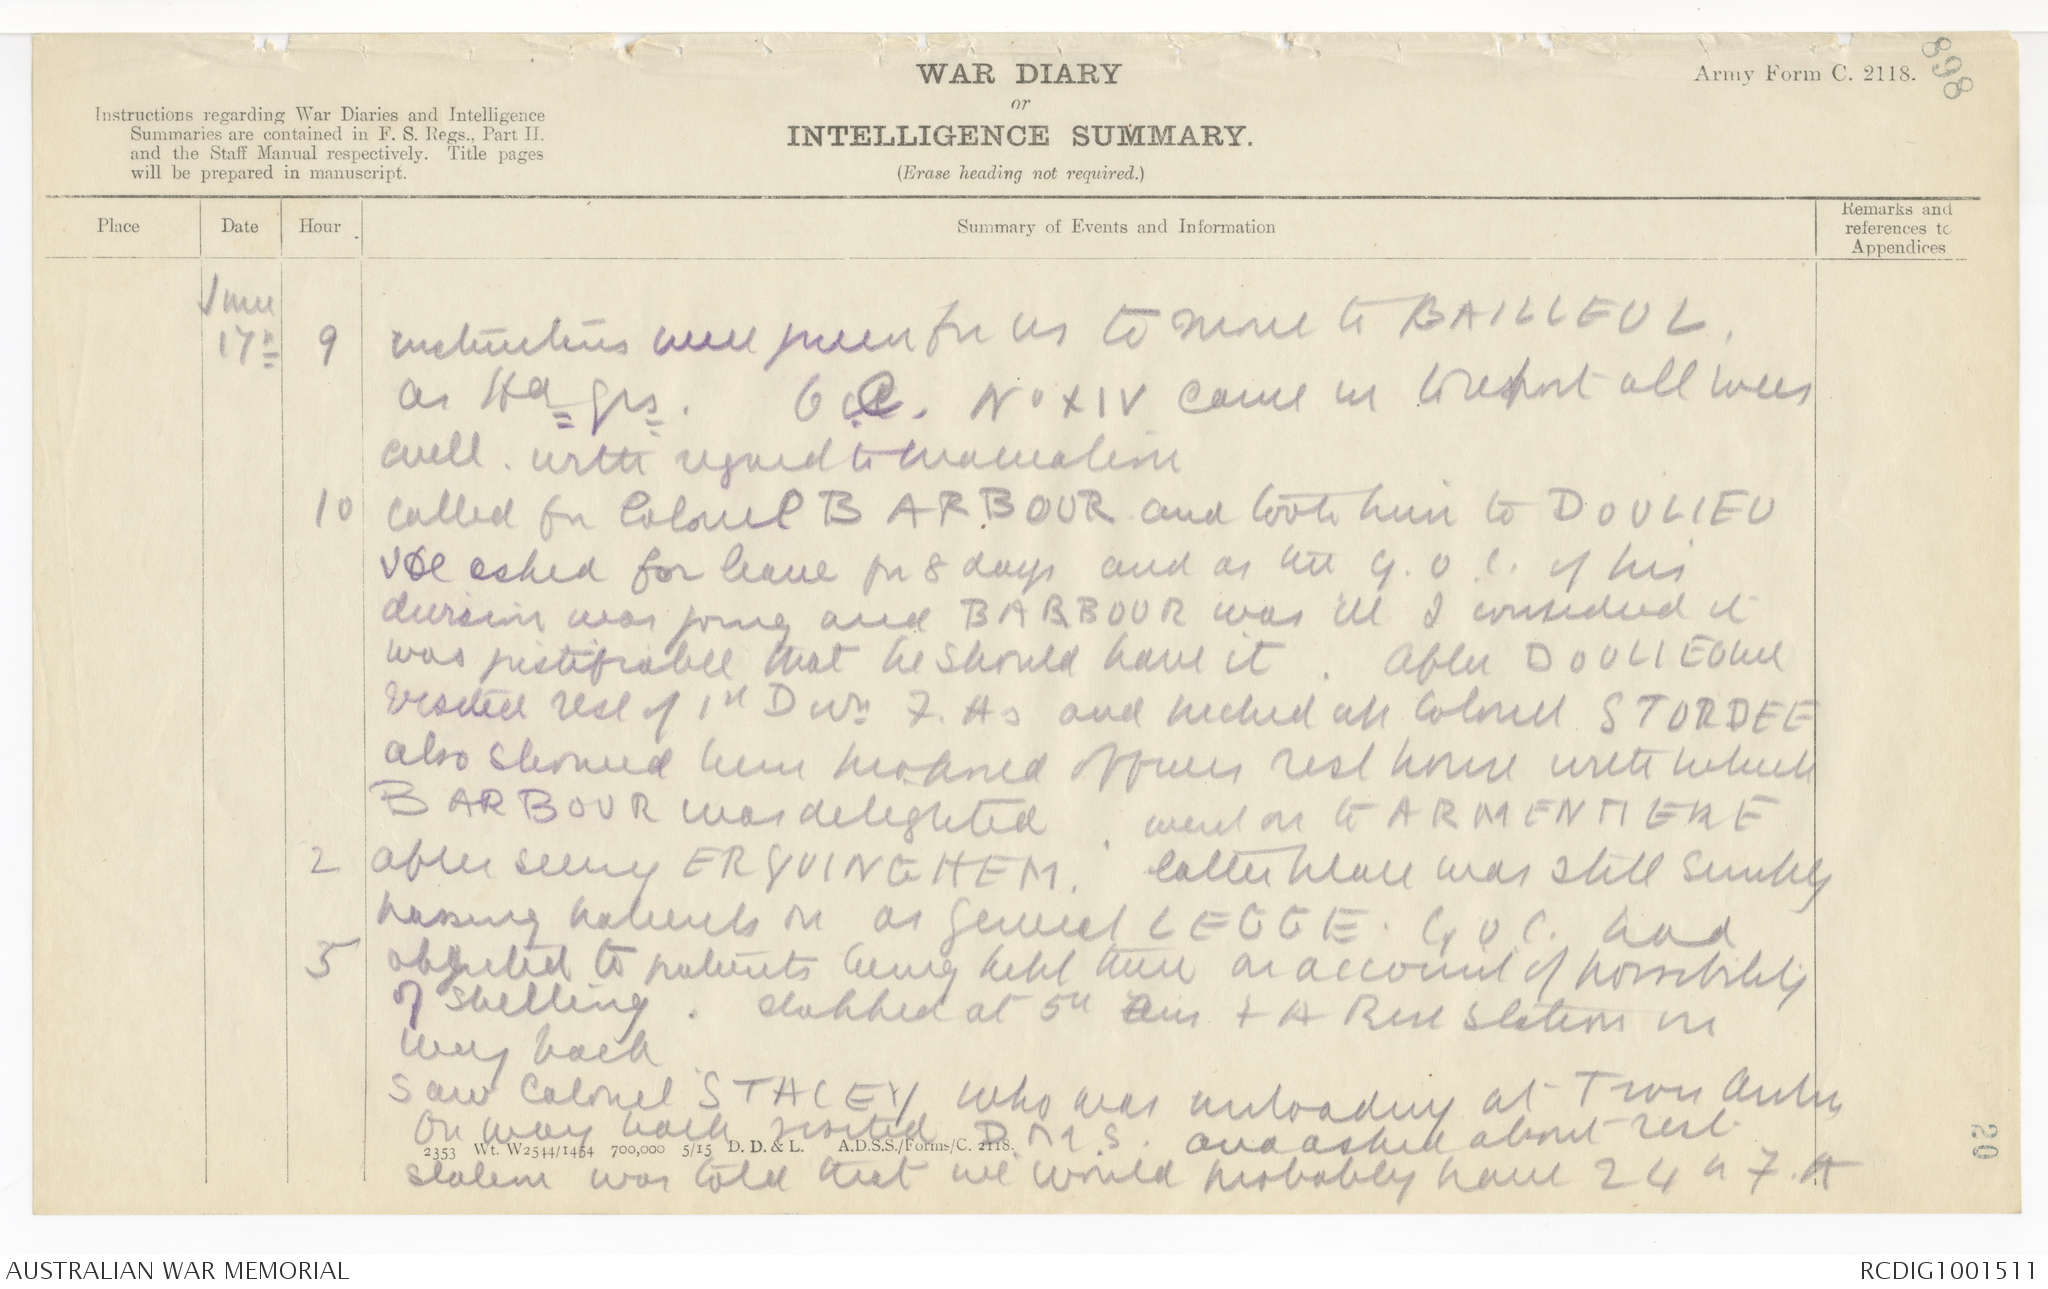 WAR DIARY
or
INTELLIGENCE SUMMARY.
(Erase heading not required.)
Army Form C. 2118.
898
Instructions regarding War Diaries and Intelligence
Summaries are contained in F. S. Regs., Part II.
and the Staff Manual respectively. Title pages
will be prepared in manuscript.
Place
Date
Hour
Summary of Events and Information
Remarks and
references to
Appendices
June
17th 9 instructions were given for us to move to BAILLEUL.
as Hd qrs. O.C. No XIV came in to report all was
well. with regard to evacuation
10 called for Colonel BARBOUR and took him to DOULIEU
He asked for leave for 8 days and as the G.O.C. of his
division was going and BARBOUR was ill I considered it
was justifiable that he should have it. After DOULIEU we
visited rest of 1st Divn F. As and picked up Colonel STORDEE
also showed him proposed Officers rest house with which
BARBOUR was delighted. went on to ARMENTIERE
2 after seeing ERQUINGHEM. latter place was still simply
passing patients on as General LEGGE. G.O.C. had
5 objected to patients being kept there on account of possibility
of shelling. stopped at 5th Aus F A Rest Station on
way back
Saw Colonel STACEY who was unloading at Trois Arbres
On way back visited D.M.S. and asked about rest
station was told that we would probably have 24th F. A
2353 Wt. W2544/1454 700,000 5/15 D. D. & L. A.D.S.S./Forms/C. 2118.
20
AUSTRALIAN WAR MEMORIAL
RCDIG1001511